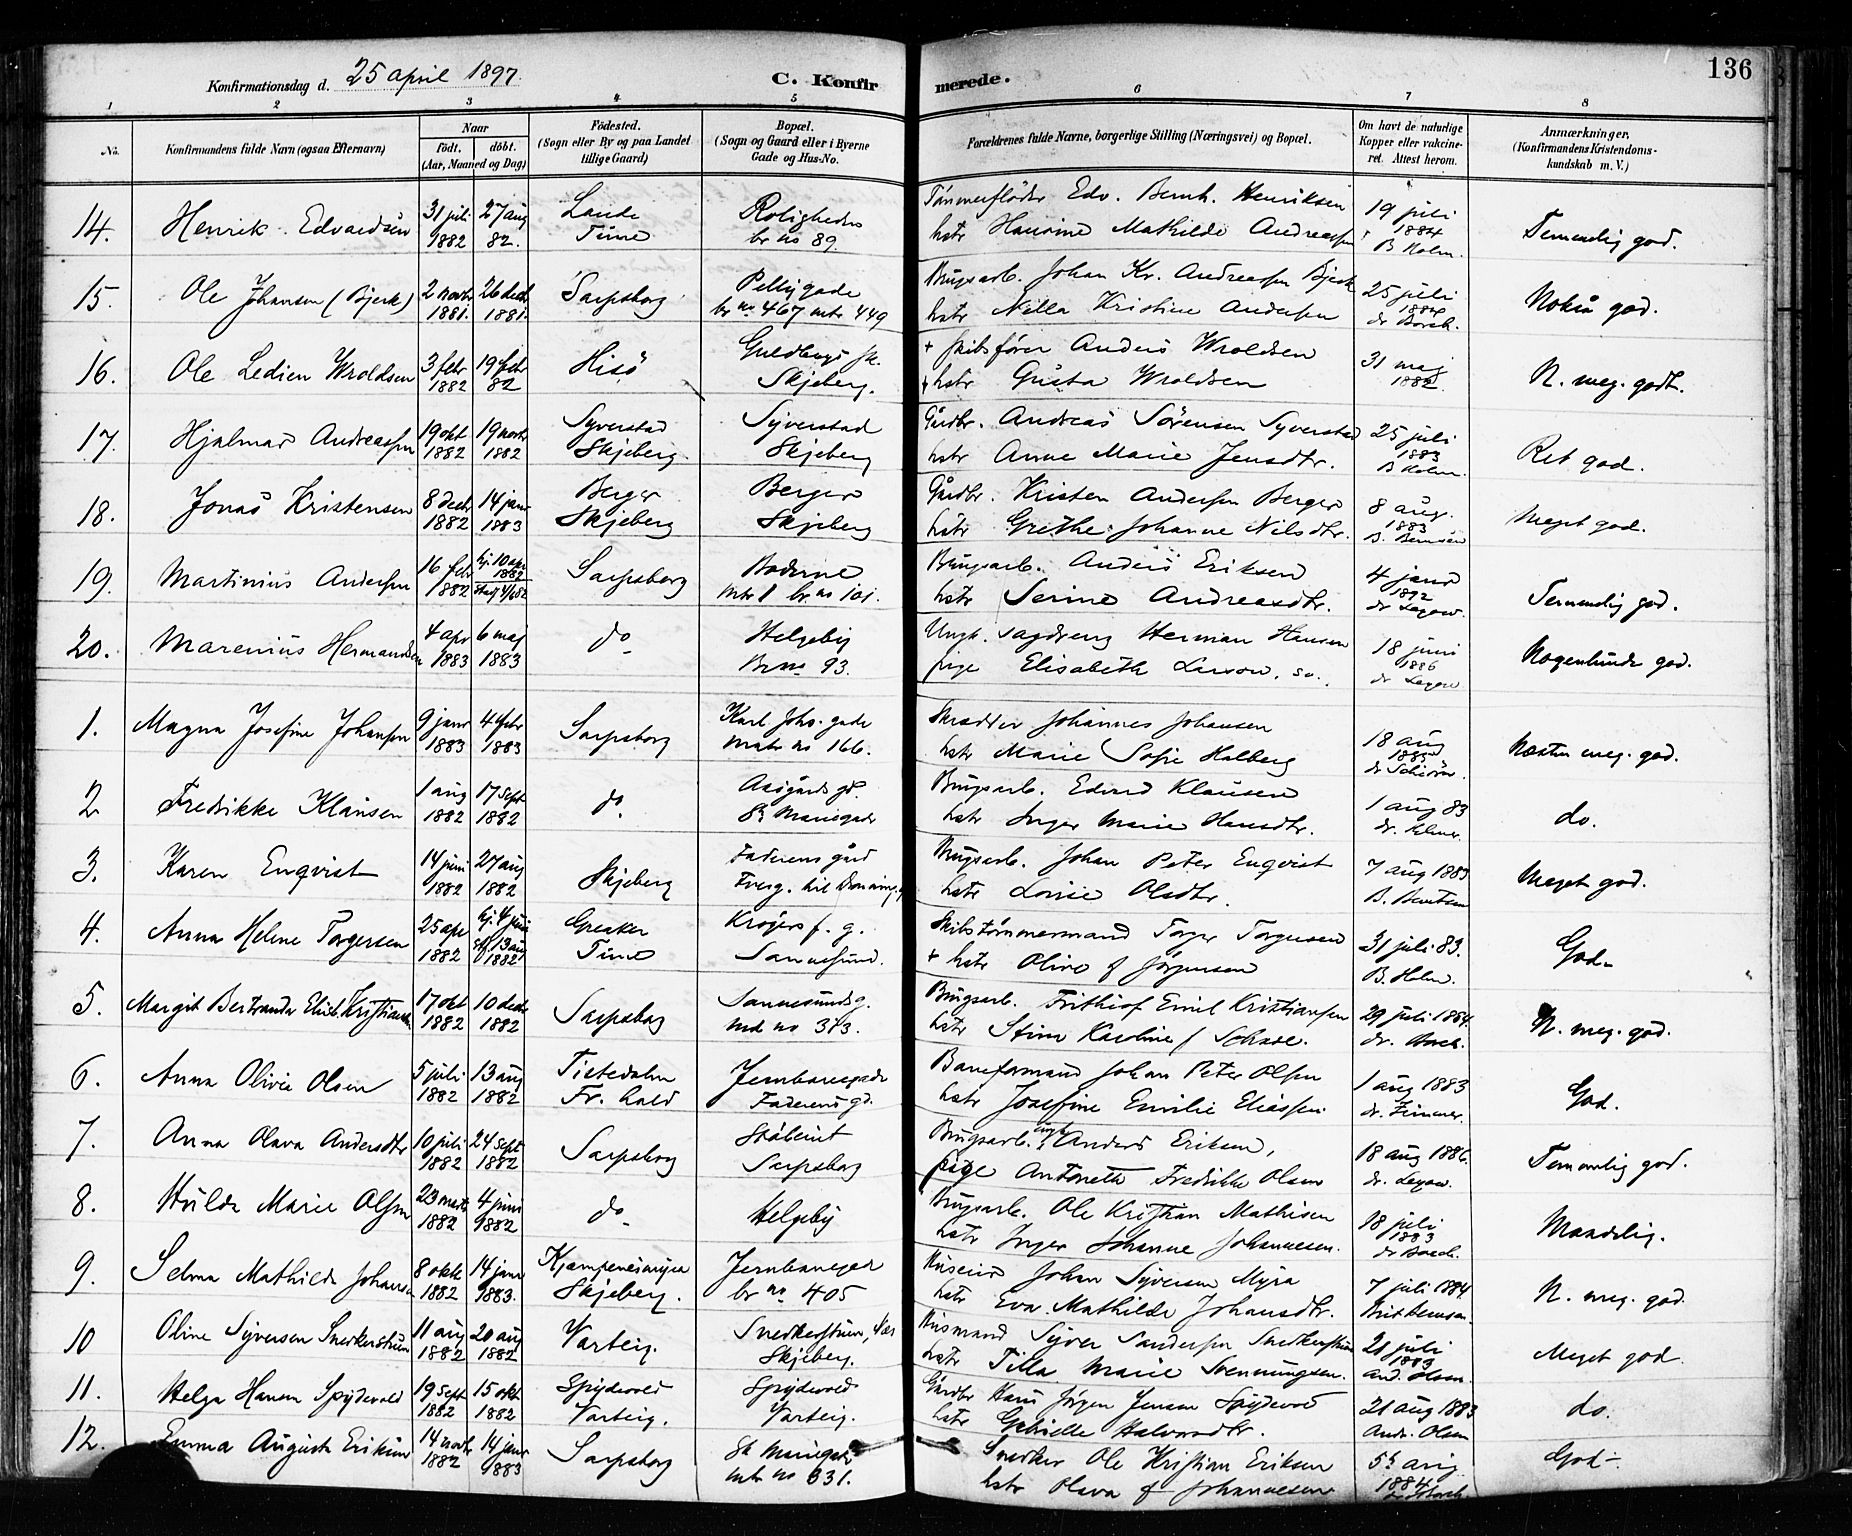 136
Konfirmationsdag d. 25 april 1897.
C. Konfirmerede.
1 2 3 4 5 6 7 8
No.
Konfirmandens fulde Navn (ogsaa Efternavn)
Naar
Födt. döbt.
(Aar, Maaned og Dag)
Födested.
(Sogn eller By og paa Landet
tillige Gaard)
Bopæl.
(Sogn og Gaard eller i Byerne
Gade og Hus-No.
Forældrenes fulde Navne, borgerlige Stilling (Næringsvei) og Bopæl.
Om havt de naturlige
Kopper eller vakcine-
ret. Attest herom.
Anmærkninger,
(Konfirmandens Kristendoms-
kundskab m. V.)
14. Henrik Edvardsen 31 juli 1882 27 aug 82. Lande Tune Roligheden br no 89
Tömmerflöder Edv. Bernh. Henriksen
hstr Mathilde Andreassen
19 juli 1884 B Holm. Temmelig god.
15. Ole Johansen (Bjerk) 2 novbr. 1881. 26 decbr 1881 Sarpsborg Pellygade br no 467 mtr 449
Brugsarb. Johan Kr. Andreassen Bjerk
hstr Nilla Kristine Andersen
25 juli 1884 dr Borch. Nokså god.
16. Ole Ledien Wroldsen 3 febr 1882 19 febr 82 Hisö Skjeberg.
+ skibsförer Anders Wroldsen
+ hstr Gusta Wroldsen
31 maj 1882. N. meg. godt.
17. Hjalmar Andreassen 19 okt 1882 19 novbr 1882 Syverstad Skjeberg Syverstad Skjeberg
Gårdbr. Andreas Sörensen Syverstad
hstr Anne Marie Jensdtr.
25 juli 1883 B Holm. Ret god.
18. Jonas Kristensen 8 decbr 1882 14 janr 1883 Berger Skjeberg Berger Skjeberg
Gårdbr. Kristen Andersen Berger
hstr Grethe Johanne Nilsdtr.
8 aug. 1883 Meget god.
19. Martinius Andersen 16 febr 1882 hj. 10 apr 1882 Sarpsborg Boderne mtr 1 br. no 101.
Brugsarb. Anders Eriksen
hstr Serine Andreasdtr.
4 janr 1892 dr Legow. Temmelig god.
20. Marenius Hermansen 4 apr 1883 6 maj 1883 do Helgeby Br no 93.
Ungk. sagdreng Herman Hansen
pige Elisabeth Larsen, sv.
18 juni 1886 dr Legow Nogenlunde god.
1. Magna Josefine Johansen 9 janr 1883 4 febr 1883 Sarpsborg Karl Johs. gade matr no 166.
Skrædder Johannes Johansen
hstr Marie Sofie Halberg
18 aug Næsten meg. god.
2 Fredrikke Klausen 1 aug 1882 17 sept 1882 do. Asigårds gd. St Mariegade
Brugsarb. Edvard Klausen
hstr Inger Marie Hansdtr.
1 aug 83 do.
3. Karen Enqvist 14 juni 1882 27 aug 1882 Skjeberg Faderens gård
Brugsarb. Johan Peter Enqvist
hstr Lovise Olsdtr.
7 aug 1883 B. Berntsen Meget god.
4. Anna Helene Torgersen 25 apr 1882 hj. 4 juni stf. 13 aug 1882 Greaker Tune Krøjers f. g. Sannesund.
Skibstømmermand Torger Torgersen
+ hstr Olive f Jörgensen
31 juli 83. B. Holm. God.
5. Margit Bertrande Elisb. Kristiansen 17 okt 1882 10 decbr 1882 Sarpsborg Sannesundsg. md no 373.
Brugsarb. Frithiof Emil Kristiansen
hstr Stina Karoline f Schade.
29 juli 1884. dr. Borch. N. meg. god.
6. Anna Olivie Olsen 5 juli 1882 13 aug 1882 Tistedalen Fr. hald Jernbanegade Faderens gd.
Baneformand Johan Peter Olsen
hstr Josefine Emilie Eliassen.
1 aug 1883 dr. Zimmer. God.
7. Anna Olava Andersdtr 10 juli 1882 24 sept 1882 Sarpsborg Sarpsborg
Brugsarb. ungk. Anders Eriksen,
pige Antonette Fredrikke Olsen
18 aug 1886. dr. Legow. Temmelig god.
8. Hulda Marie Olsen 23 marts 1882 4 juni 1882 do Helgeby
Brugsarb. Ole Kristian Mathisen
hstr Inger Johanne Johannesen.
18 juli 1883 dr Borch. Maadelig.
9. Selma Mathilde Johansen 8 okt 1882 14 janr 1883. Skjeberg. Jernbanegad br no 405
Huseier Johan Syversen Myra
hstr Eva Mathilde Johansdtr.
7 juli 1884 N. meg. god
10 Oline Syversen Snekkerstuen 11 aug 1882 20 aug 1882 Varteig. Snekkerstuen, Skjeberg.
Husmand Syver Sandersen Snekkerstuen
hstr Tilla Marie Svenningsen.
21 juli 1883 And. Olsen. Meget god.
11. Helga Hansen Spydevold 19 sept 1882 15 okt 1882 Spydevold Varteig. Spydevold Varteig.
Gårdbr Hans Jörgen Jensen Spydevold
hstr Gabrielle Halvorsdtr.
21 aug 1883 Andr. Olsen do.
12. Emma Augusta Eriksen 14 novbr 1882 14 janr 1883 Sarpsborg St Mariegade mtr no 331.
Snedker Ole Kristian Eriksen
hstr Olava f Johannesen
5 aug 1884 God.